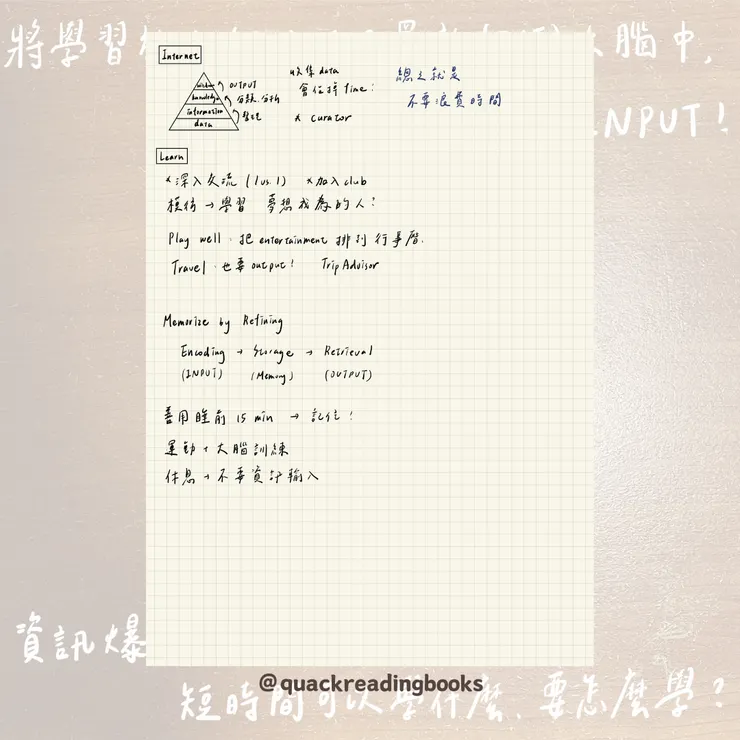 將學習
腦中,
INPUT!
Internet
wisdom
knowledge
information
data
OUTPUT
分類.分析
整理
收集 data
會佔掉 time!
* curator
總之就是
不要浪費時間
Learn
*深入交流 (1 vs. 1) *加入 club
模仿→學習 夢想成為的人!
Play well.把 entertainment 排到行事曆.
Travel.也要 output! TripAdvisor
Memorize by Refining
Encoding → Storage → Retrieval
(INPUT) (Memory) (OUTPUT)
善用睡前 15 min → 記住!
運動+大腦訓練
休息→不要資訊輸入
資訊爆
@quackreadingbooks
短時間可以學什麼,要怎麼學?